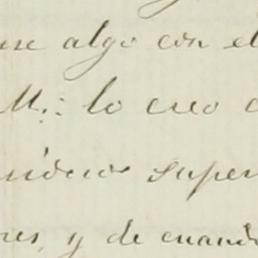 se algo con el
M.: lo creo
super
res, y de cuand